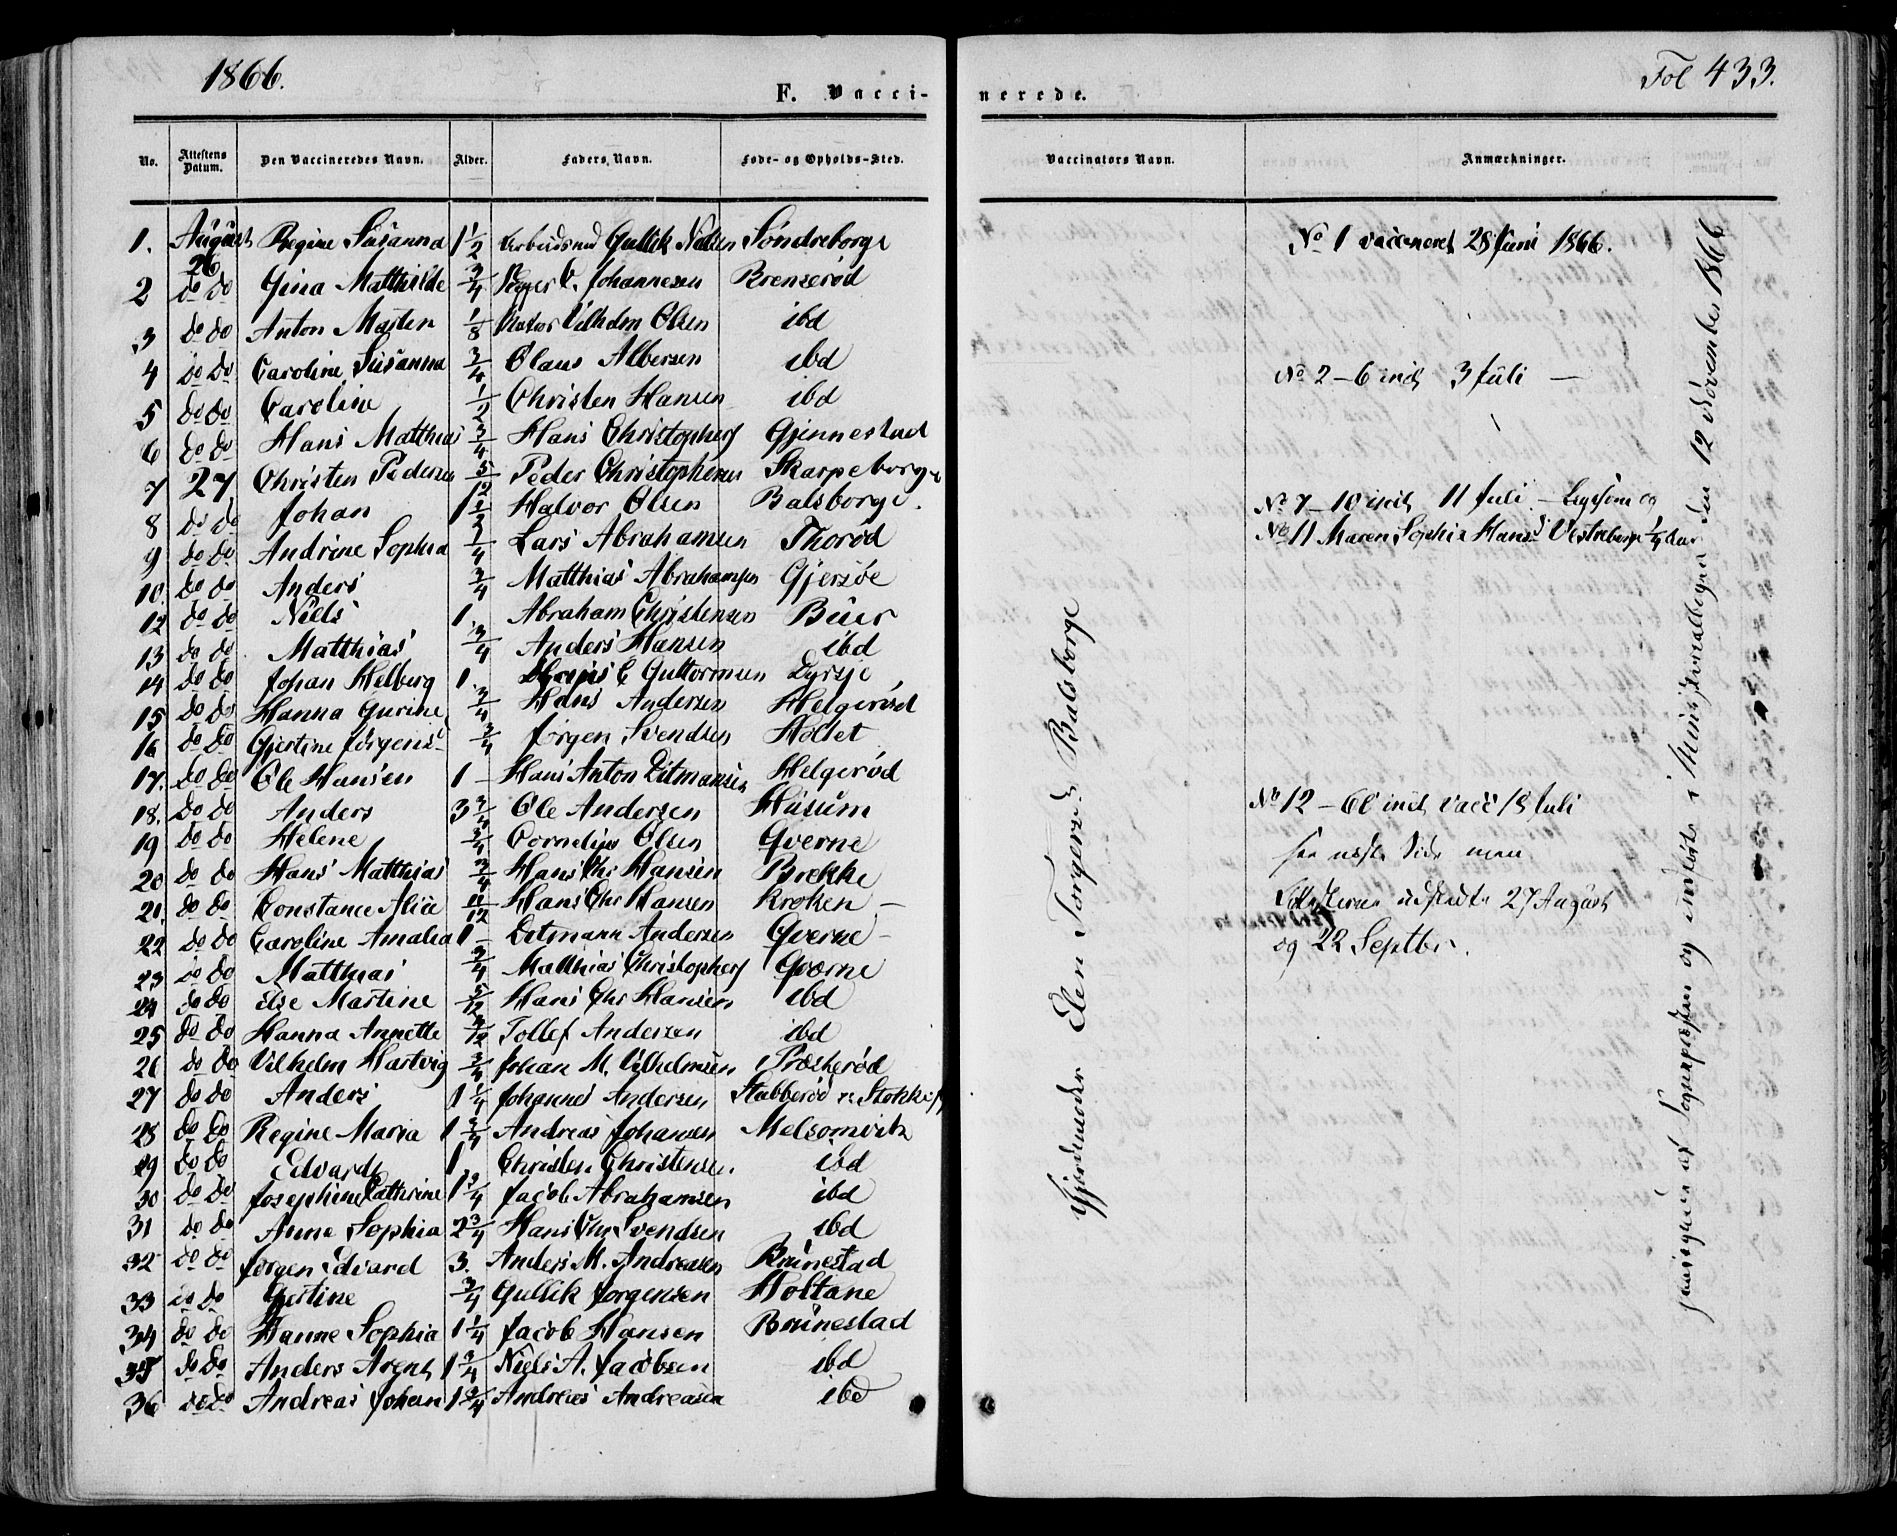 1866.
F. Vacci-
No. Attestens Datum. Den Vaccineredes Navn. Alder. Faders Navn. Føde- og Opholds-Sted.
1. August 26 Regine Susanna 1 1/2 Gullik Nielsen Søndreborge
2 do do Gina Matthilde 3/4 Johannesen Brenserød
3 do do Anton Marten 1/8 Vilhelm Olsen ibd
4 do do Caroline Susanna 3/4 Olaus Albersen ibd
5 do do Caroline 1/2 Christen Hansen ibd
6 do do Hans Matthias 3/4 Hans Christophers Gjennestad
7 27 Christen Pedersen 5/12 Peder Christophersen Skarpeborge
8 do do Johan 1 1/2 Halvor Olsen Balsborge.
9 do do Andrine Sophia 1/4 Lars Abrahamsen Thorød
10. do do Anders 3/4 Matthias Abrahamsen Gjersøe
12 do do Niels 1. Abraham Christensen Buer
13 do do Matthias 3/4 Anders Hansen ibd
14 do do Johan Helberg 1. Guttormsen Dyrsje
15 do do Hanna Gurine 3/4 Hans Andersen Helgerød
16 do do Gjertine Jörgens 3/4 Jörgen Svendsen Holtet
17. do do Ole Hansen 1 – Hans Anton Ditmansen Helgerød
18. do do Anders 3 3/4 Ole Andersen Husum
19 do do Helene 3/4 Cornelius Olsen Qverne
20 do do Hans Matthias 3/4 Hans Chr Hansen Brekke
21 do do Constance Alice 11/12 Hans Chr Hansen Kroken –
22 do do Caroline Amalia 1 – Ditmann Andersen Qverne –
23 do do Matthias 3/4 Matthias Christophers Qværne
24 do do Else Martine 5/12 Hans Chr Hansen ibd
25 do do Hanna Annette /12 Tollef Andersen ibd
26 do do Vilhelm Hartvig 3/4 Johan M. Vilhelmsen Præsterød
27 do do Anders 1 1/4 Johannes Andersen Stubberød Stokke
28 do do Regine Maria 1 3/4 Andreas Johansen Melsomvik
29 do do Edvard 1 Christen Christensen ibd
30 do do Josephine Cathrine 1 3/4 Jacob Abrahamsen ibd
31 do do Anne Sophia 2 3/4 Hans Chr Svendsen ibd
32 do do Jørgen Edvard 3. Anders M. Andreasen Brunestad
33 do do Gjertine 3/4 Gullik Jorgensen Holtane
34 do do Hanne Sophia 1 1/4 Jacob Hansen Brunestad
35 do do Anders Arent 1 3/4 Niels A. Jacobsen ibd
36 do do Andreas Johan 1 3/4 Andreas Andreasen ibd
nerede.
Fol 433.
Vaccinators Navn. Anmærkninger.
Gjordemoder Elen Torgersd. Balsborge
No 1 vaccineret 28 Juni 1866.
No 2 – 6 incl 3 Juli –
No 7 – 10 incl 11 Juli – Ligesom og
No 11 Maren Sophie Hansd Vestreborge 1/4 Aar
No 12 – 60 incl vacc 18 Juli
see næste Side men
Attesterne udstedte 27 August
og 22 Septbr.
af Sognepresten og indført i Ministerialbogen den 12 November 1866